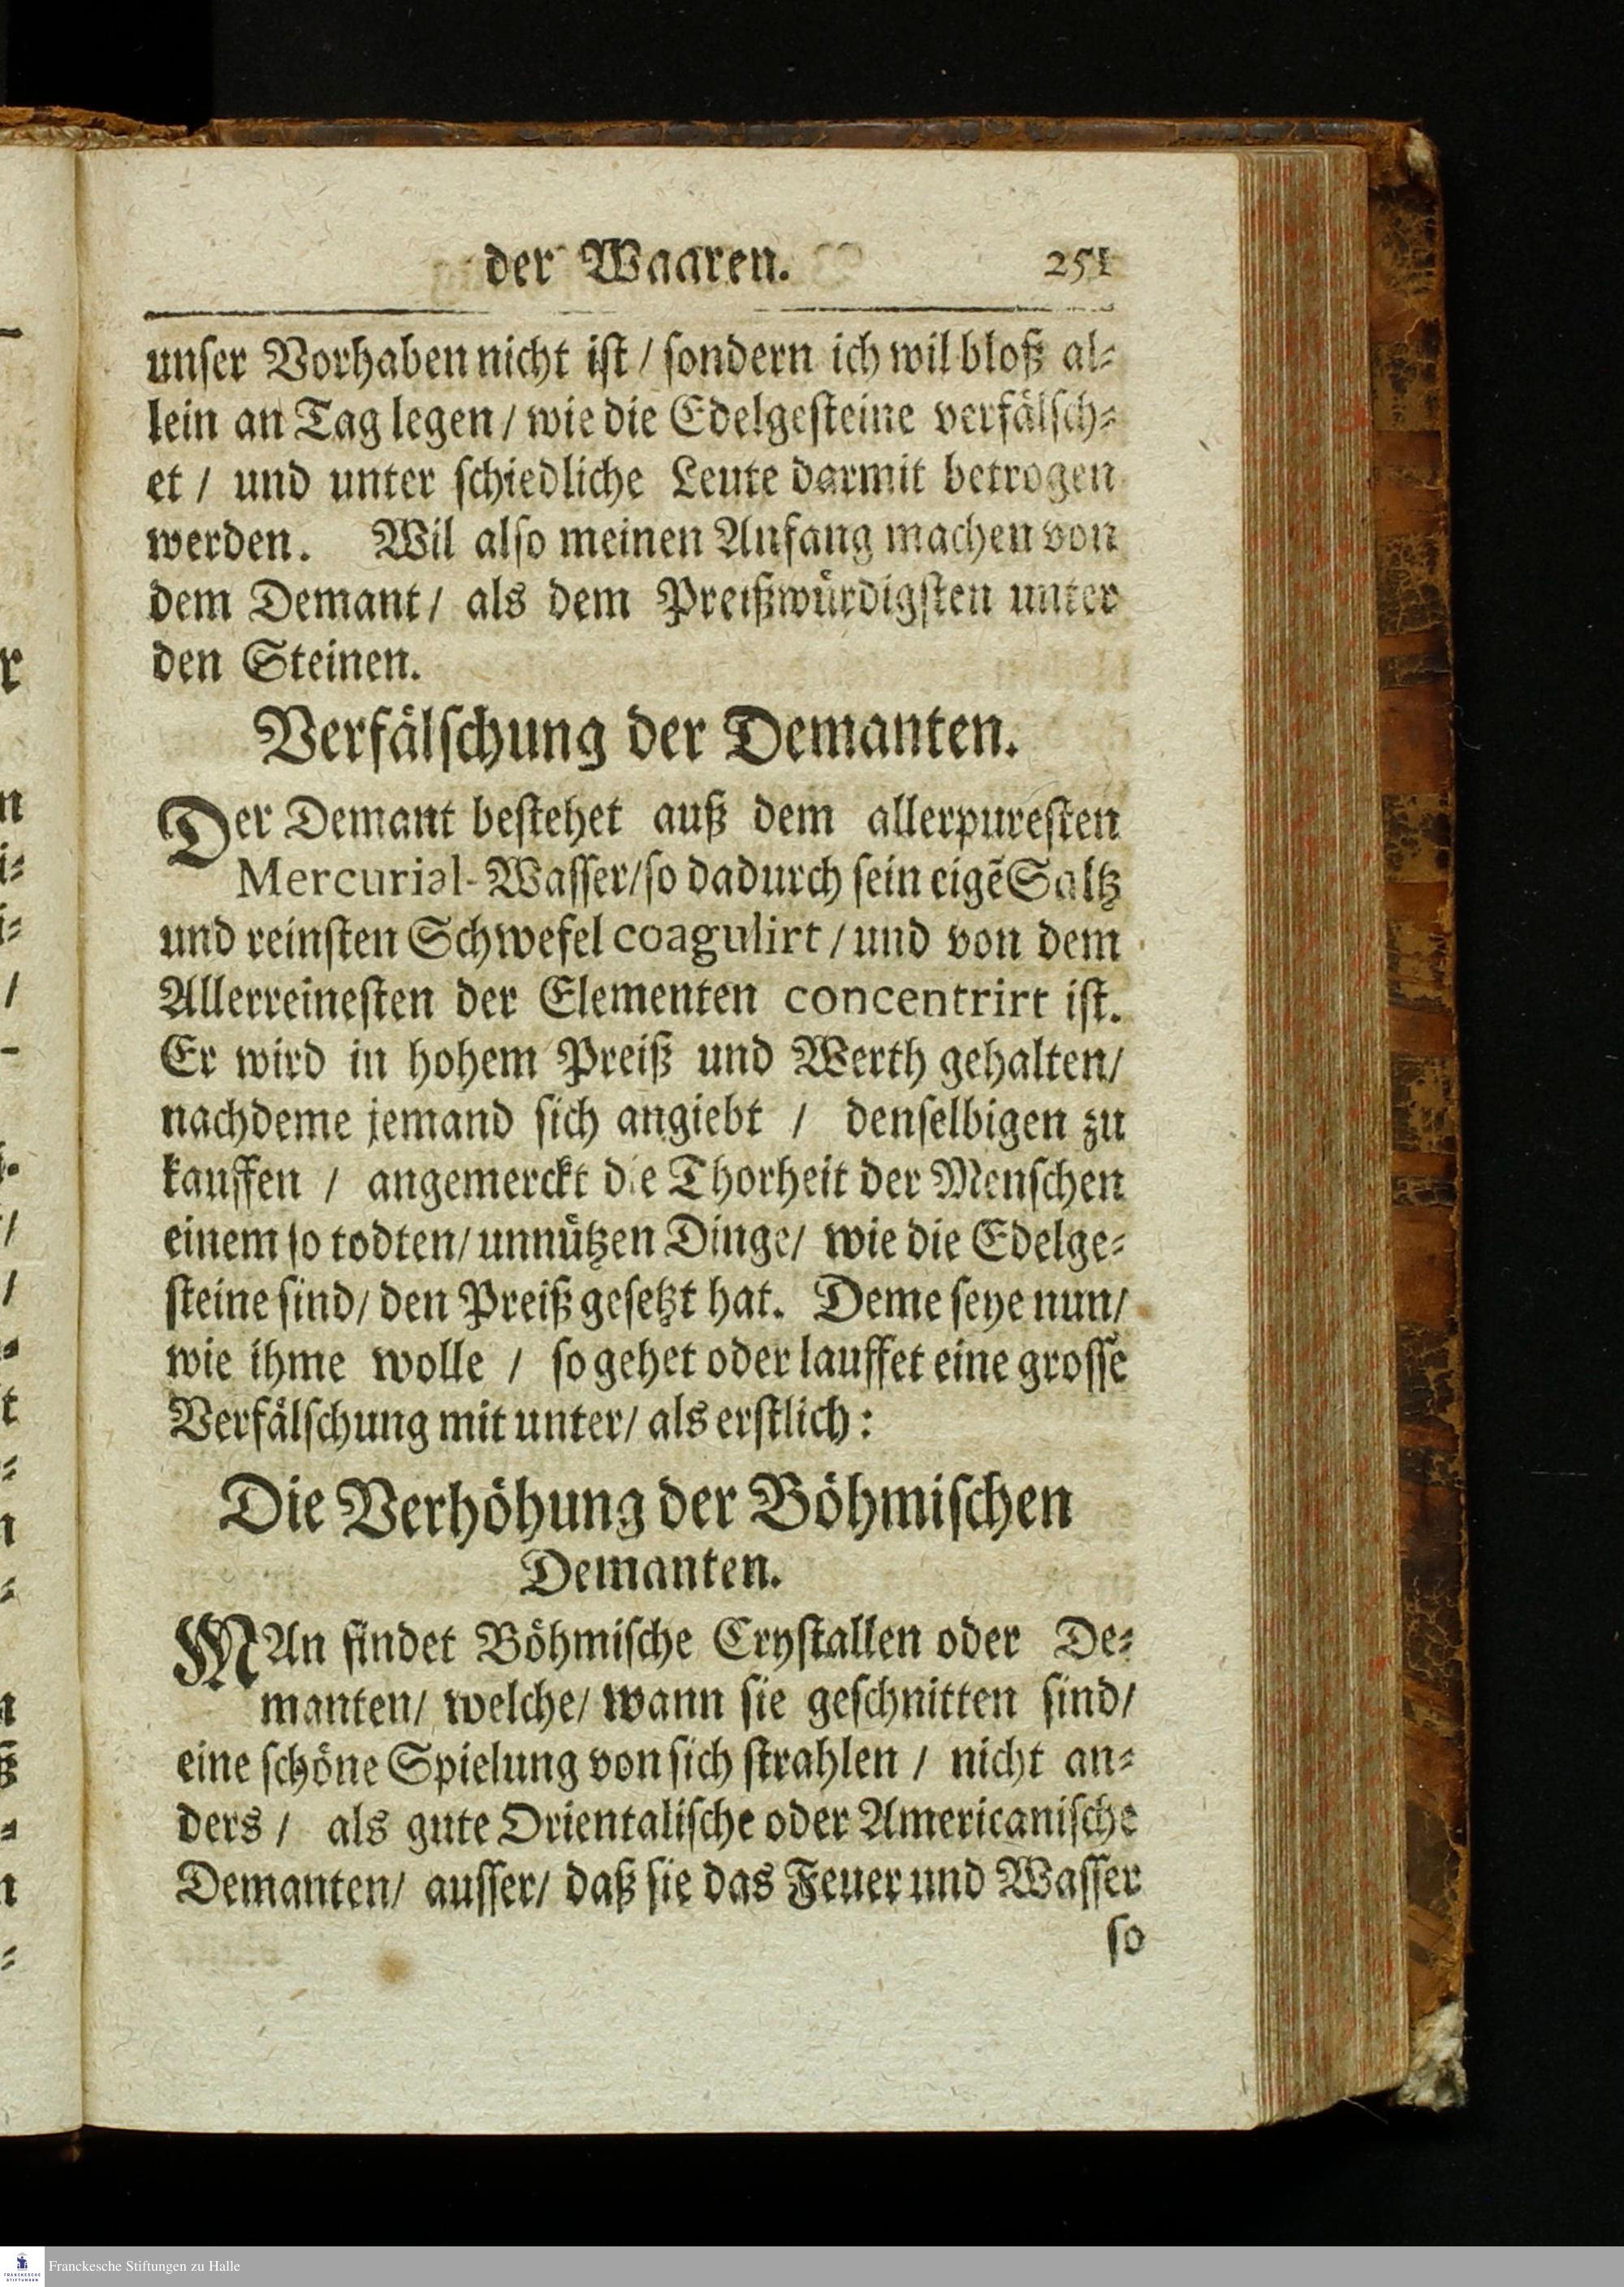 der Waaren. 251
unſer Vorhaben nicht iſt / ſondern ich wil bloß al⸗
lein an Tag legen / wie die Edelgeſteine verfälſch⸗
et / und unter ſchiedliche Leute darmit betrogen
werden. Wil alſo meinen Anfang machen von
dem Demant / als dem Preißwürdigſten unter
den Steinen.
Verfälſchung der Demanten.
Der Demant beſtehet auß dem allerpureſten
Mercurial-Waſſer / ſo dadurch ſein eigẽ Saltz
und reinſten Schwefel coagulirt / und von dem
Allerreineſten der Elementen concentrirt iſt.
Er wird in hohem Preiß und Werth gehalten /
nachdeme jemand ſich angiebt / denſelbigen zu
kauffen / angemerckt die Thorheit der Menſchen
einem ſo todten / unnützen Dinge / wie die Edelge⸗
ſteine ſind / den Preiß geſetzt hat. Deme ſeye nun /
wie ihme wolle / ſo gehet oder lauffet eine groſſe
Verfälſchung mit unter / als erſtlich:
Die Verhöhung der Böhmiſchen
Demanten.
MAn findet Böhmiſche Cryſtallen oder De⸗
manten / welche / wann ſie geſchnitten ſind /
eine ſchöne Spielung von ſich ſtrahlen / nicht an⸗
ders / als gute Orientaliſche oder Americaniſche
Demanten / auſſer / daß ſie das Feuer und Waſſer
ſo
FRANCKESCHE
STIFTUNGEN
Franckesche Stiftungen zu Halle